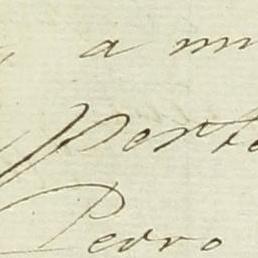 a m
Porto
Pedro